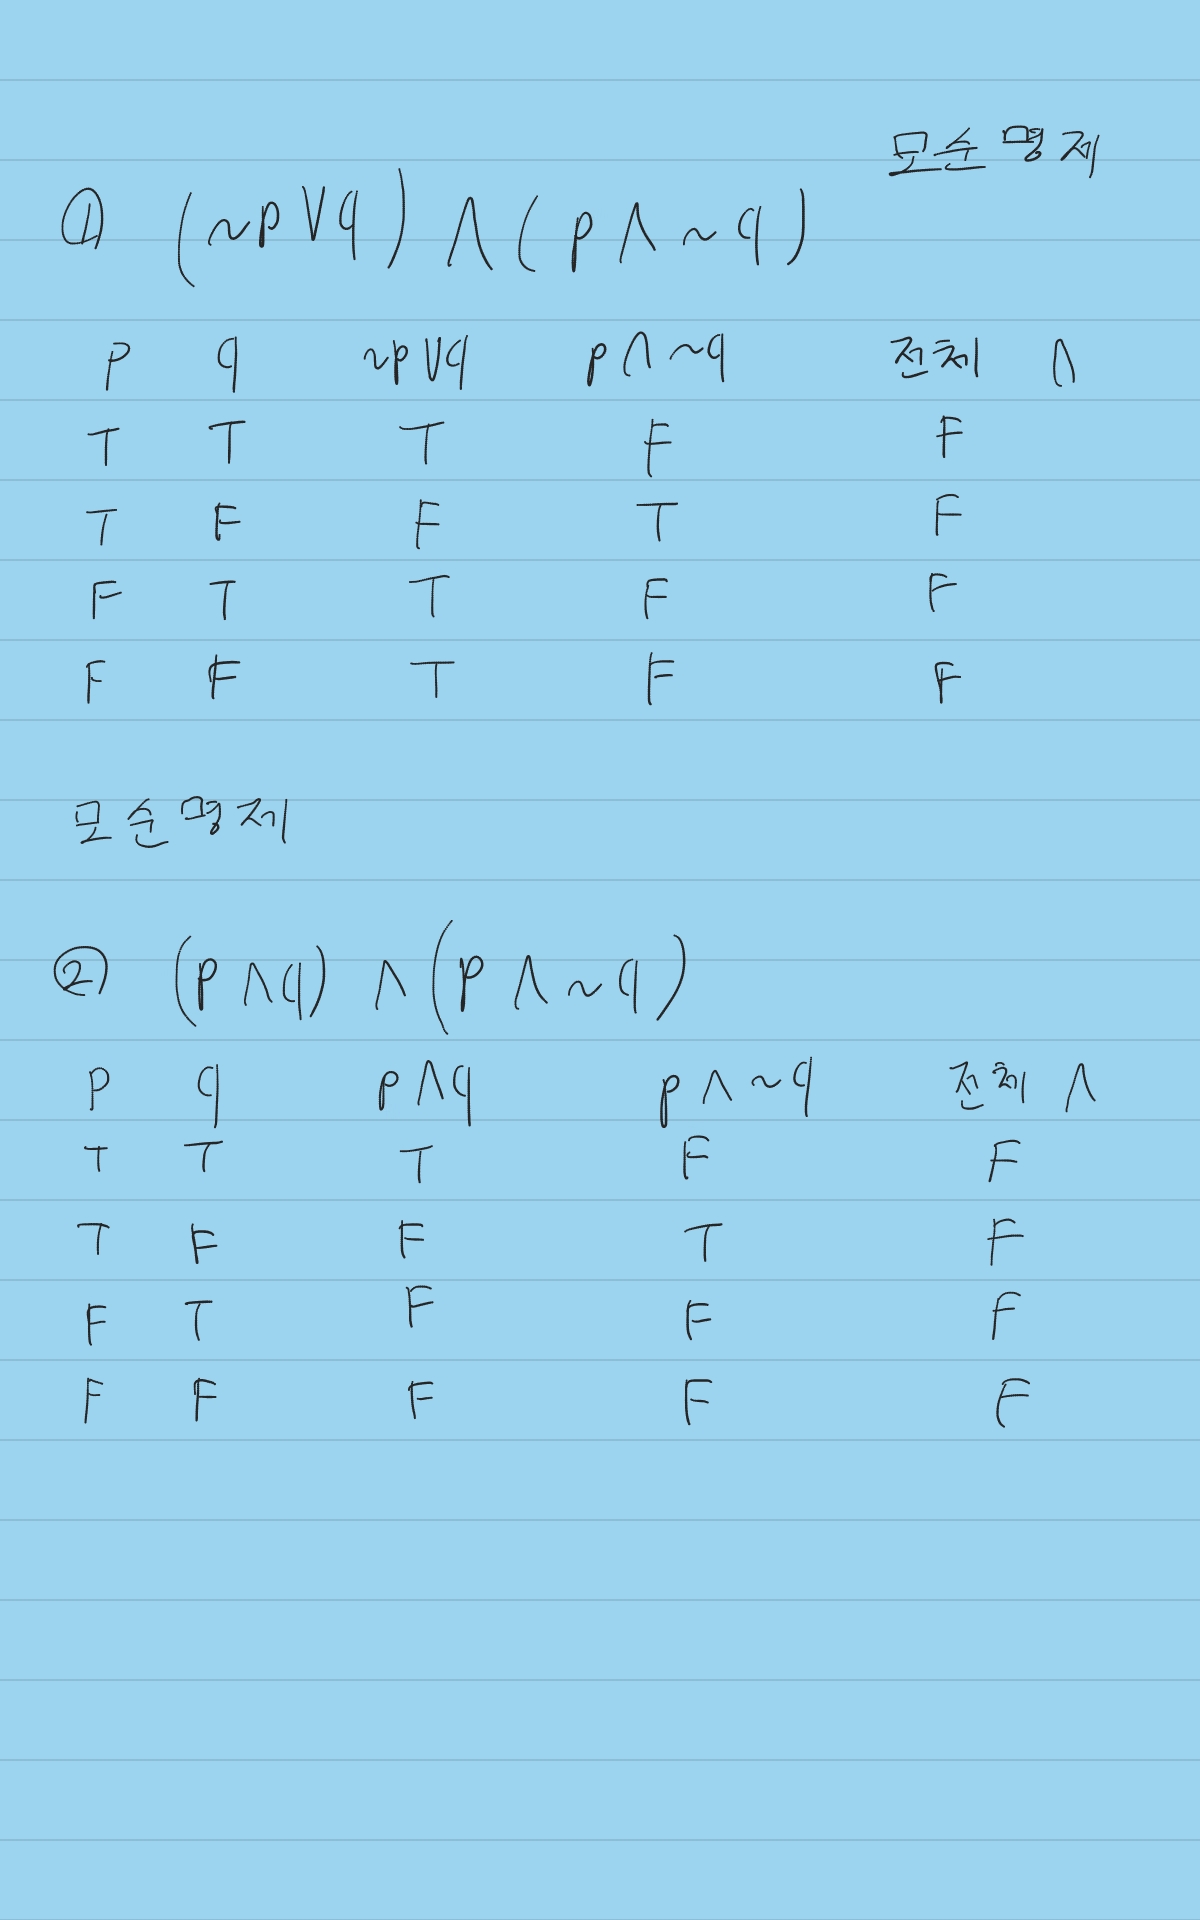 모순명제
① (~p∨q) ∧ (p∧~q)
p q ~p∨q p∧~q 전체 ∧
T T T F F
T F F T F
F T T F F
F F T F F
모순명제
② (p∧q) ∧ (p∧~q)
p q p∧q p∧~q 전체 ∧
T T T F F
T F F T F
F T F F F
F F F F F